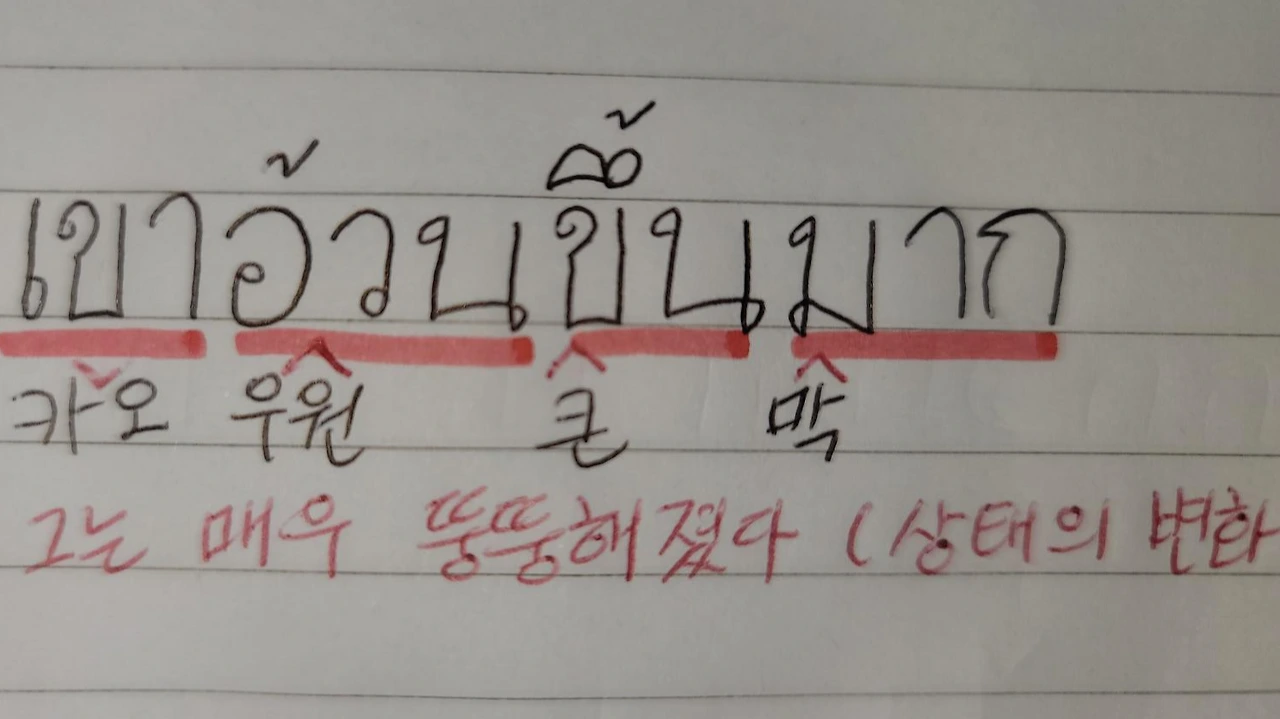 เขาอ้วนขึ้นมาก
카오 우원 큰 막
그는 매우 뚱뚱해졌다 (상태의 변화